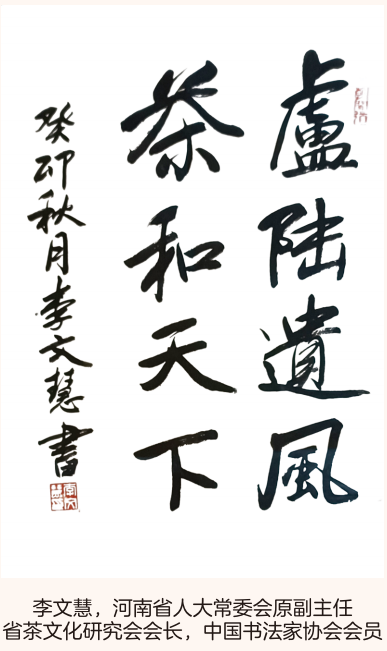 盧陆遺風
茶和天下
癸卯秋月李文慧書
李文慧，河南省人大常委会原副主任
省茶文化研究会会长，中国书法家协会会员